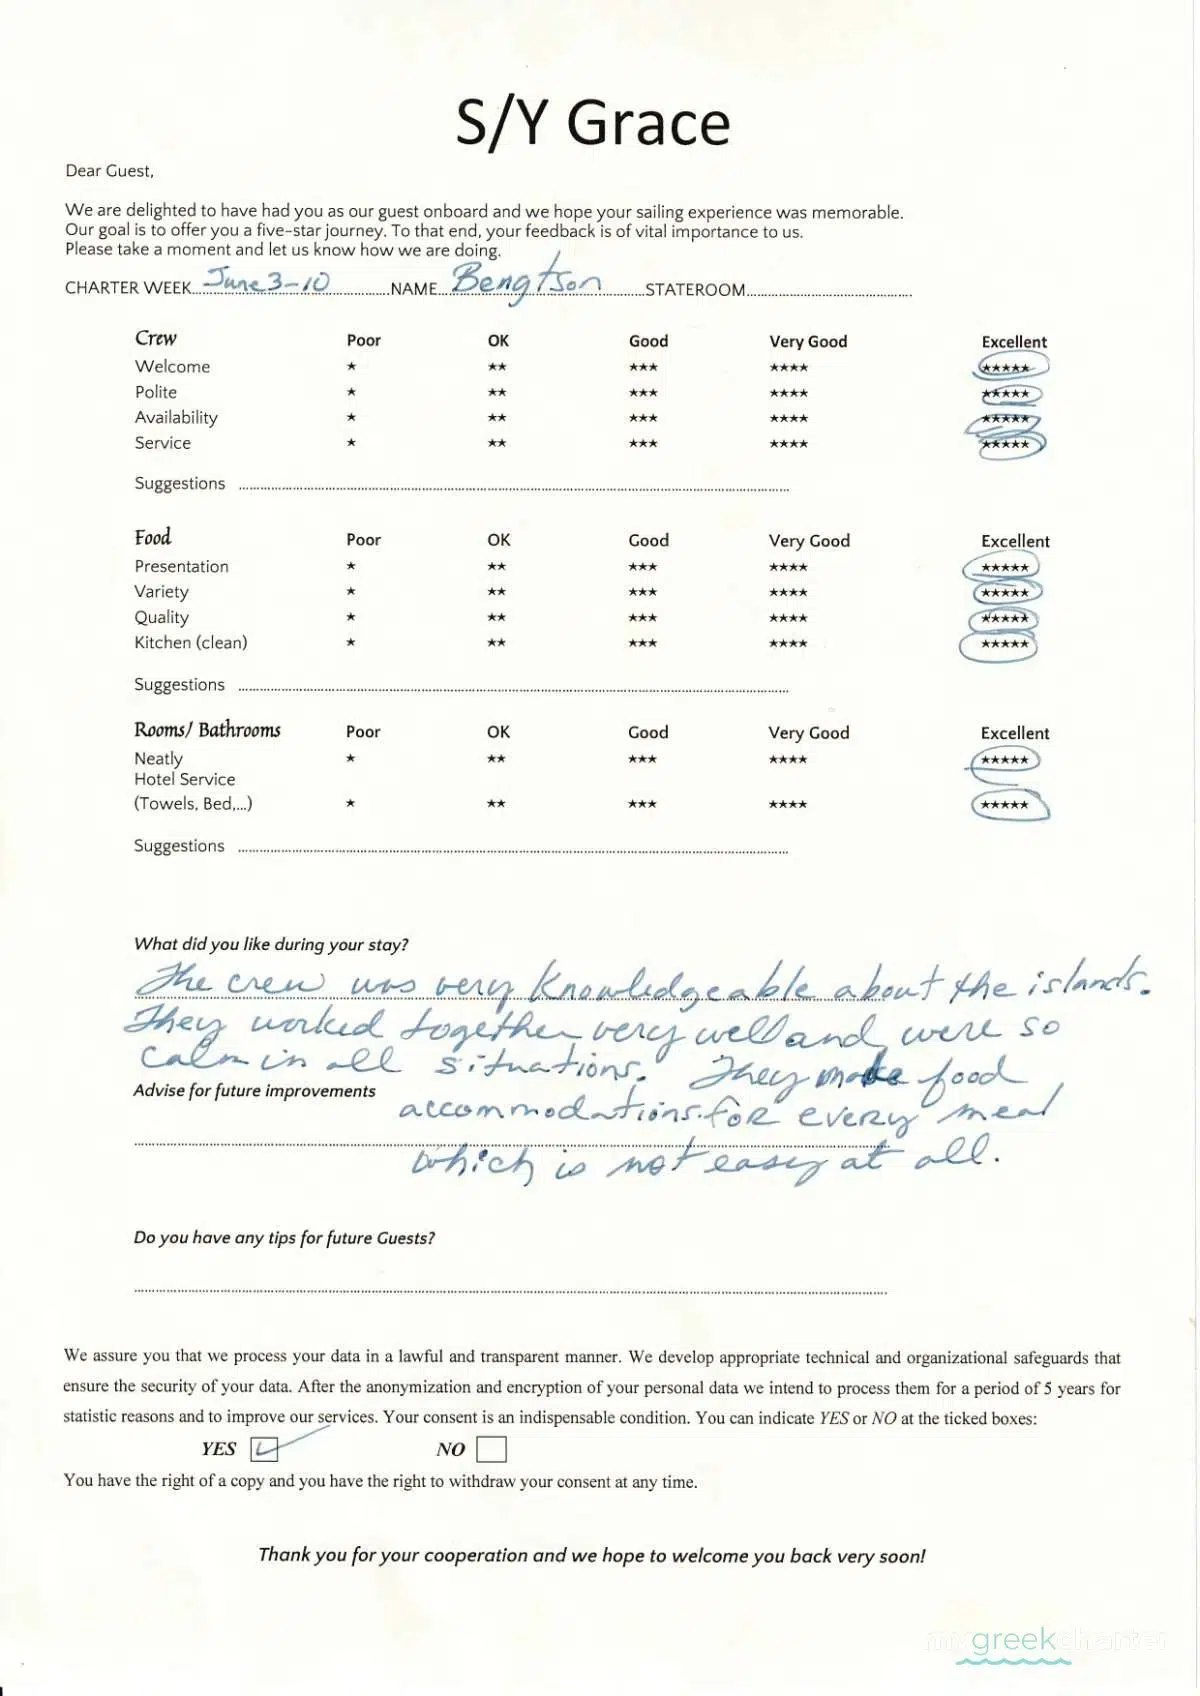 S/Y Grace
Dear Guest,
We are delighted to have had you as our guest onboard and we hope your sailing experience was memorable.
Our goal is to offer you a five-star journey. To that end, your feedback is of vital importance to us.
Please take a moment and let us know how we are doing.
CHARTER WEEK June 3-10 NAME Bengtson STATEROOM
Crew Poor OK Good Very Good Excellent
Welcome ★ ★★ ★★★ ★★★★ ★★★★★
Polite ★ ★★ ★★★ ★★★★ ★★★★★
Availability ★ ★★ ★★★ ★★★★ ★★★★★
Service ★ ★★ ★★★ ★★★★ ★★★★★
Suggestions
Food Poor OK Good Very Good Excellent
Presentation ★ ★★ ★★★ ★★★★ ★★★★★
Variety ★ ★★ ★★★ ★★★★ ★★★★★
Quality ★ ★★ ★★★ ★★★★ ★★★★★
Kitchen (clean) ★ ★★ ★★★ ★★★★ ★★★★★
Suggestions
Rooms/ Bathrooms Poor OK Good Very Good Excellent
Neatly ★ ★★ ★★★ ★★★★ ★★★★★
Hotel Service
(Towels, Bed,...) ★ ★★ ★★★ ★★★★ ★★★★★
Suggestions
What did you like during your stay?
The crew was very knowledgeable about the islands.
They worked together very well and were so
calm in all situations. They make food
Advise for future improvements
accommodations for every meal
which is not easy at all.
Do you have any tips for future Guests?
We assure you that we process your data in a lawful and transparent manner. We develop appropriate technical and organizational safeguards that
ensure the security of your data. After the anonymization and encryption of your personal data we intend to process them for a period of 5 years for
statistic reasons and to improve our services. Your consent is an indispensable condition. You can indicate YES or NO at the ticked boxes:
YES NO
You have the right of a copy and you have the right to withdraw your consent at any time.
Thank you for your cooperation and we hope to welcome you back very soon!
my greek charter